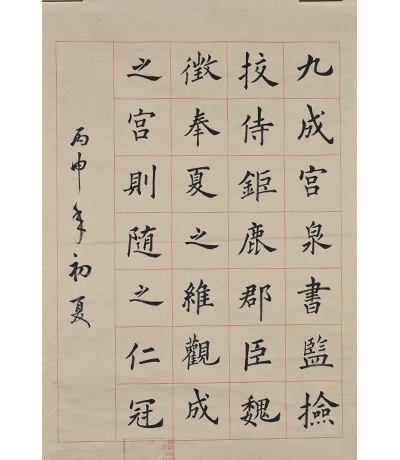 九成宮泉書監撿
挍侍鉅鹿郡臣魏
徵奉夏之維觀成
之宮則随之仁冠
丙申年初夏